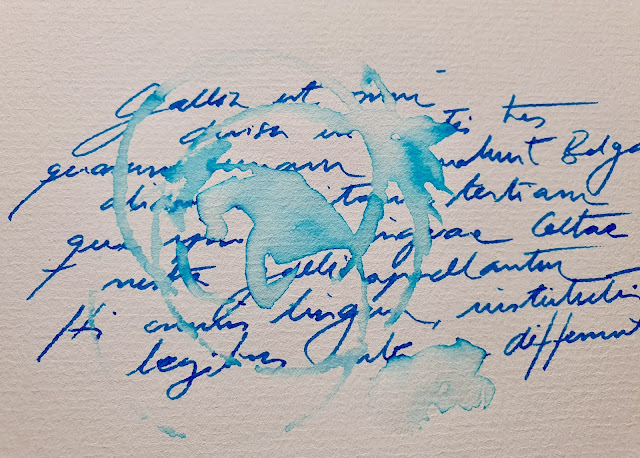 Gallia est omni
divisa in tis tres
quarum unam incolunt Belga
aliam tertiam
qui ipso linguae Celtae
nostra Galli appellantur
Hi omnes lingua, institutis
legibus inte differunt